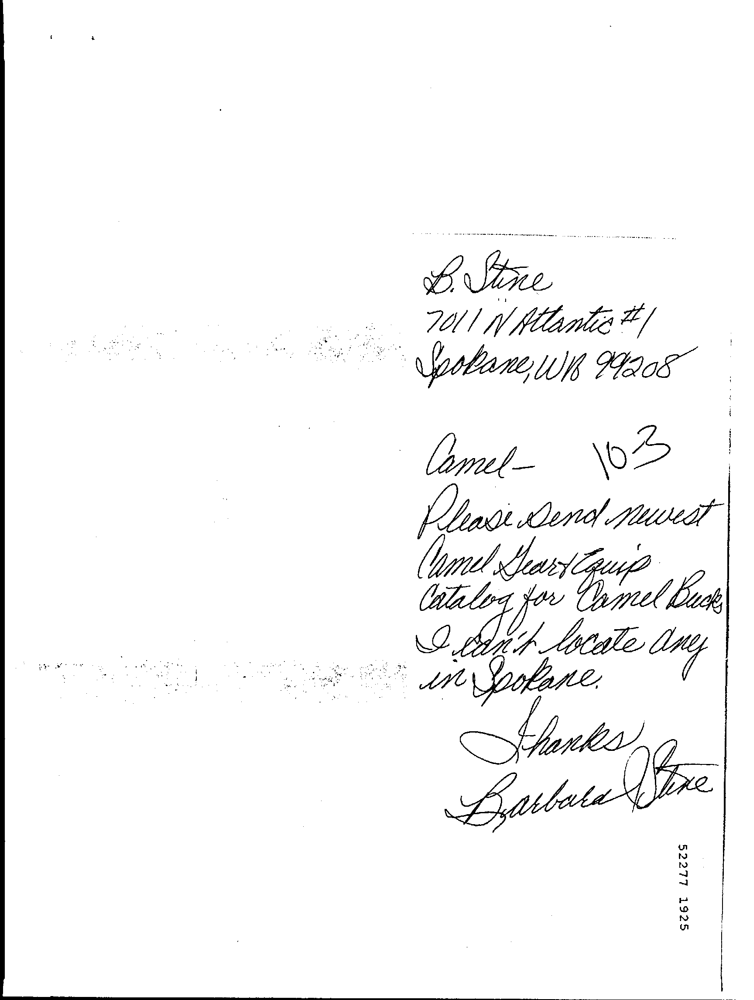 B. Stine
7011 N Atlantic #1
Spokane, WA 99208
Camel- 103
Please send newest
Camel Gear & Equip
Catalog for Camel Bucks
I can't locate any
in Spokane.
Thanks
Barbara J Stine
52277 1925